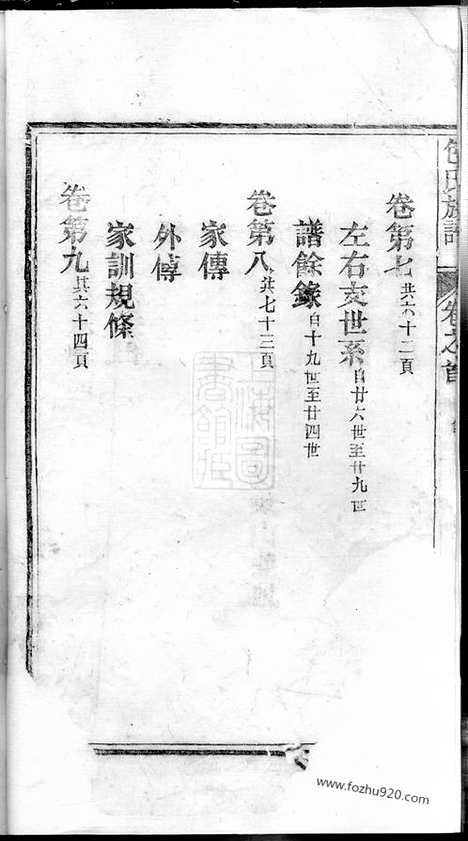 卷第七共六十二頁
左右支世系自廿六世至廿九世
譜餘錄自十九世至廿四世
卷第八共七十三頁
家傳
外傳
家訓規條
卷第九共六十四頁
包氏族譜 卷之首
www.fozhu920.com